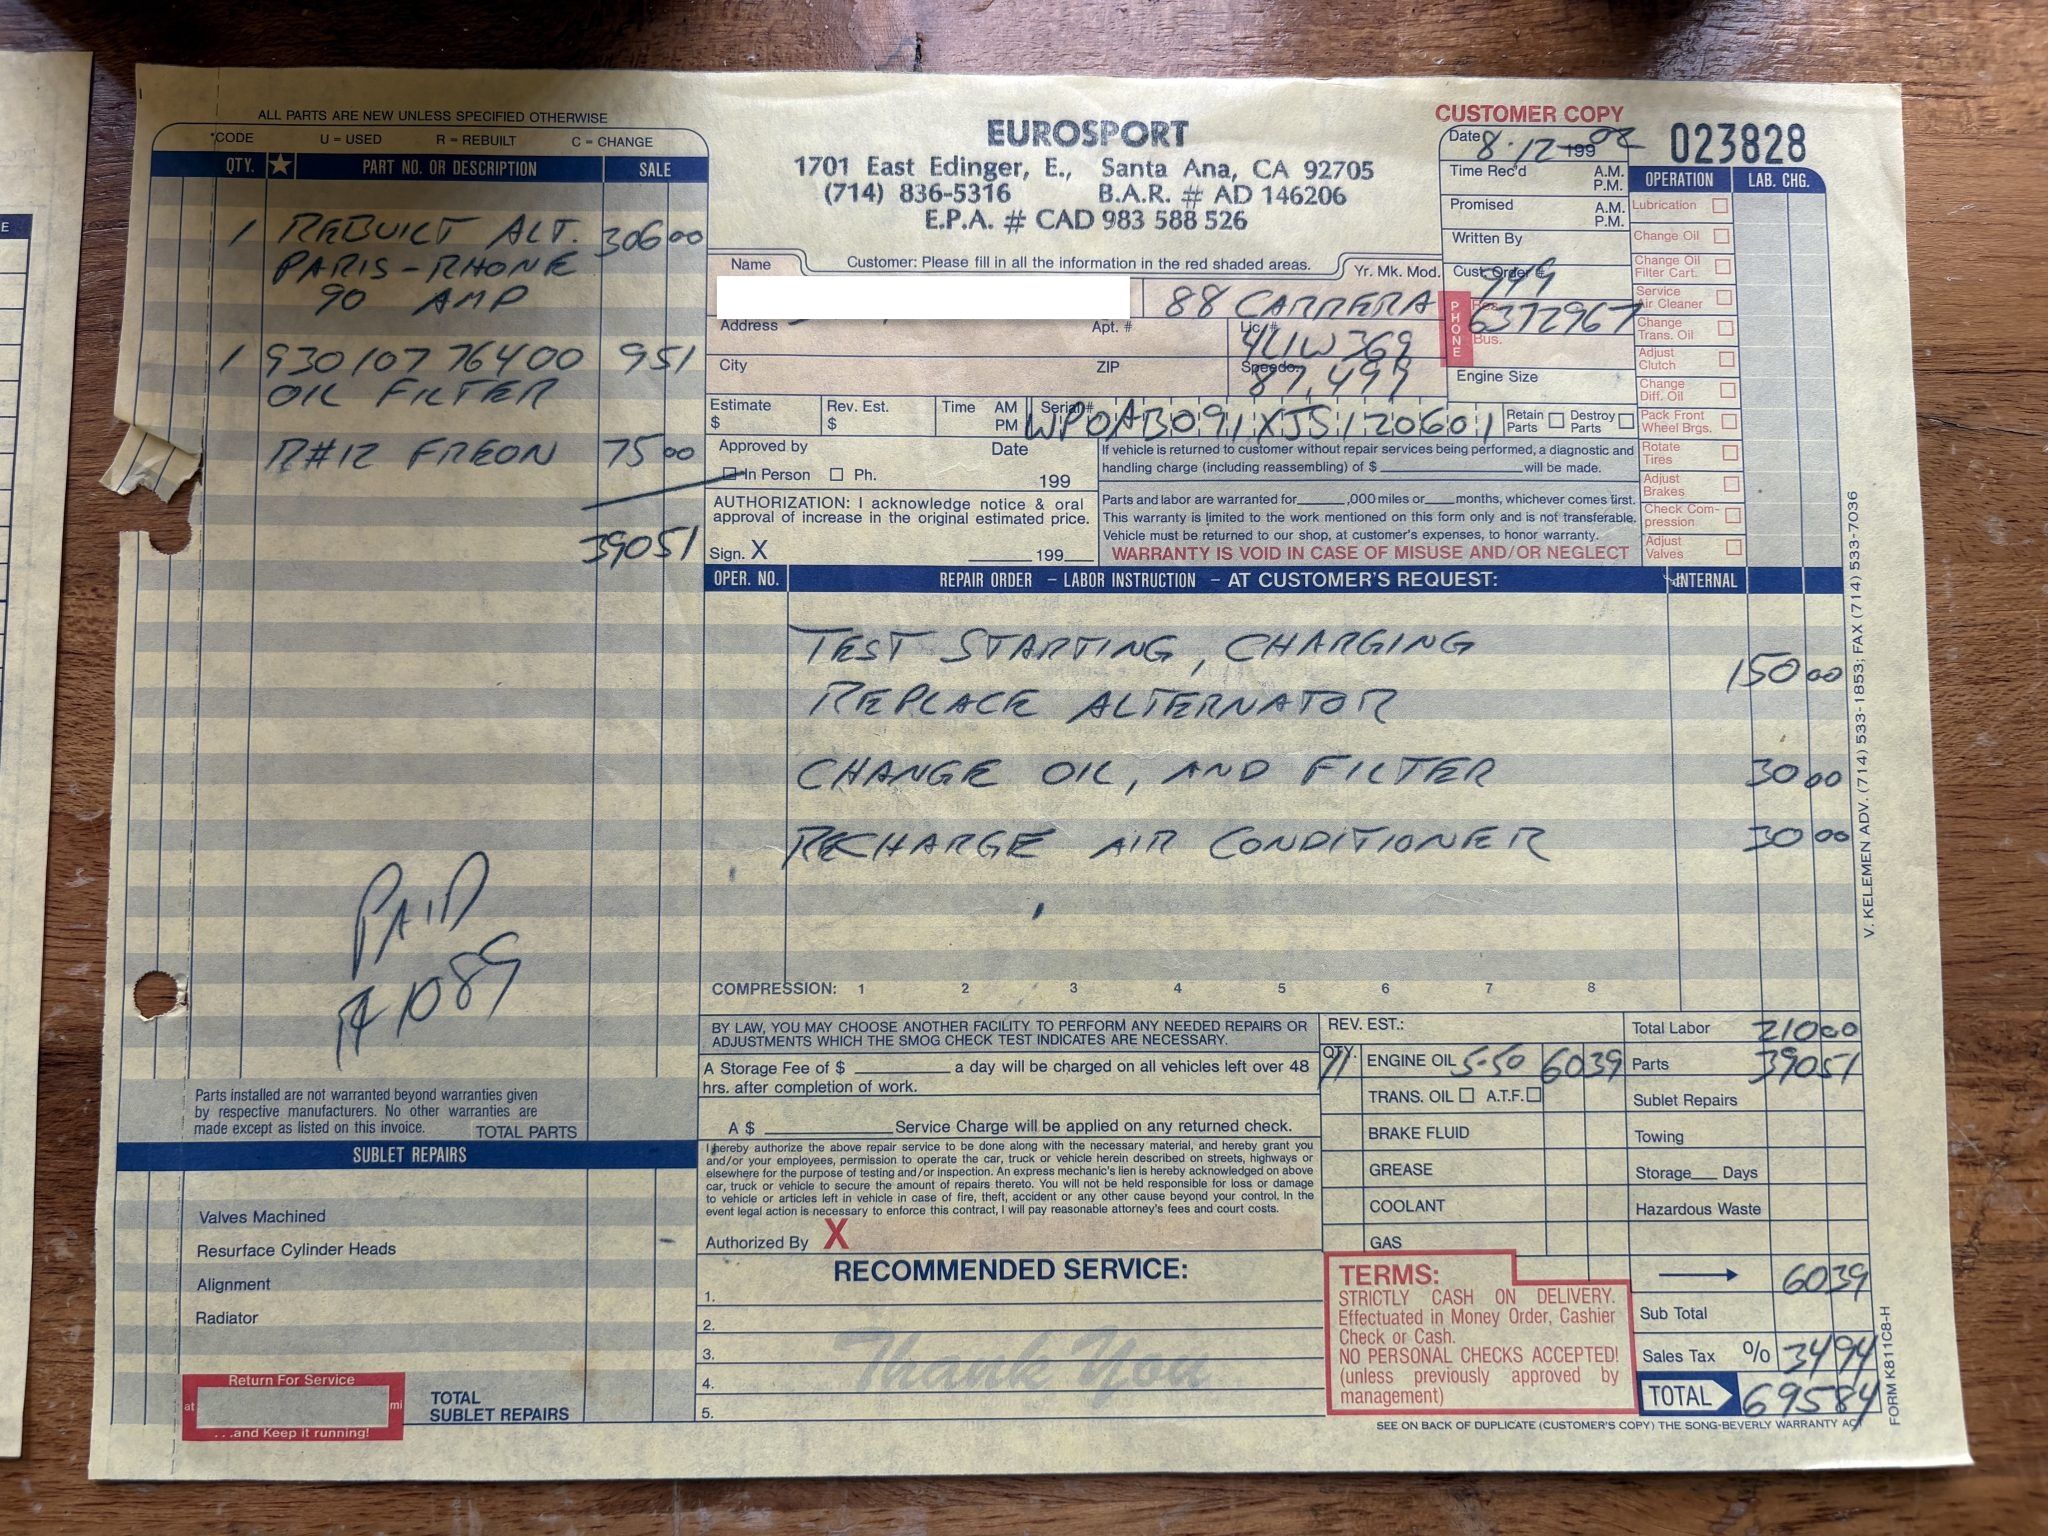 ALL PARTS ARE NEW UNLESS SPECIFIED OTHERWISE
*CODE U = USED R = REBUILT C = CHANGE
QTY. ★ PART NO. OR DESCRIPTION SALE
1 REBUILT ALT. 306 00
PARIS-RHONE
90 AMP
1 930 107 764 00 9 51
OIL FILTER
R#12 FREON 75 00
390 51
PAID
# 1089
Parts installed are not warranted beyond warranties given
by respective manufacturers. No other warranties are
made except as listed on this invoice.
TOTAL PARTS
SUBLET REPAIRS
Valves Machined
Resurface Cylinder Heads
Alignment
Radiator
Return For Service
at mi
...and Keep it running!
TOTAL
SUBLET REPAIRS
EUROSPORT
1701 East Edinger, E., Santa Ana, CA 92705
(714) 836-5316 B.A.R. # AD 146206
E.P.A. # CAD 983 588 526
Customer: Please fill in all the information in the red shaded areas.
CUSTOMER COPY
023828
Date 8-12-199 02
Time Rec'd A.M.
P.M.
Promised A.M.
P.M.
Written By
Cust. Order #
949
PHONE
Res.
6372967
Bus.
Engine Size
Name
Yr. Mk. Mod.
88 CARRERA
Address Apt. # Lic. #
4LIW369
City ZIP Speedo.
87,499
Estimate
$
Rev. Est.
$
Time AM
PM
Serial#
WP0AB091XJS120601
Retain
Parts
Destroy
Parts
Approved by Date
In Person Ph. 199
AUTHORIZATION: I acknowledge notice & oral
approval of increase in the original estimated price.
Sign. X 199
If vehicle is returned to customer without repair services being performed, a diagnostic and
handling charge (including reassembling) of $ will be made.
Parts and labor are warranted for ,000 miles or months, whichever comes first.
This warranty is limited to the work mentioned on this form only and is not transferable.
Vehicle must be returned to our shop, at customer's expenses, to honor warranty.
WARRANTY IS VOID IN CASE OF MISUSE AND/OR NEGLECT
OPERATION LAB. CHG.
Lubrication
Change Oil
Change Oil
Filter Cart.
Service
Air Cleaner
Change
Trans. Oil
Adjust
Clutch
Change
Diff. Oil
Pack Front
Wheel Brgs.
Rotate
Tires
Adjust
Brakes
Check Com-
pression
Adjust
Valves
OPER. NO. REPAIR ORDER – LABOR INSTRUCTION – AT CUSTOMER'S REQUEST: INTERNAL
TEST STARTING, CHARGING
150 00
REPLACE ALTERNATOR
CHANGE OIL, AND FILTER 30 00
RECHARGE AIR CONDITIONER 30 00
COMPRESSION: 1 2 3 4 5 6 7 8
BY LAW, YOU MAY CHOOSE ANOTHER FACILITY TO PERFORM ANY NEEDED REPAIRS OR
ADJUSTMENTS WHICH THE SMOG CHECK TEST INDICATES ARE NECESSARY.
A Storage Fee of $ a day will be charged on all vehicles left over 48
hrs. after completion of work.
A $ Service Charge will be applied on any returned check.
I hereby authorize the above repair service to be done along with the necessary material, and hereby grant you
and/or your employees, permission to operate the car, truck or vehicle herein described on streets, highways or
elsewhere for the purpose of testing and/or inspection. An express mechanic's lien is hereby acknowledged on above
car, truck or vehicle to secure the amount of repairs thereto. You will not be held responsible for loss or damage
to vehicle or articles left in vehicle in case of fire, theft, accident or any other cause beyond your control. In the
event legal action is necessary to enforce this contract, I will pay reasonable attorney's fees and court costs.
Authorized By X
RECOMMENDED SERVICE:
1.
2.
3.
4.
5.
Thank You
REV. EST.:
QTY.
11 ENGINE OIL 5-50 60 39
TRANS. OIL A.T.F.
BRAKE FLUID
GREASE
COOLANT
GAS
TERMS:
STRICTLY CASH ON DELIVERY.
Effectuated in Money Order, Cashier
Check or Cash.
NO PERSONAL CHECKS ACCEPTED!
(unless previously approved by
management)
Total Labor 210 00
Parts 390 51
Sublet Repairs
Towing
Storage Days
Hazardous Waste
60 39
Sub Total
Sales Tax % 34 94
TOTAL 695 84
SEE ON BACK OF DUPLICATE (CUSTOMER'S COPY) THE SONG-BEVERLY WARRANTY ACT
V. KELEMEN ADV. (714) 533-1853; FAX (714) 533-7036
FORM K811C8-H